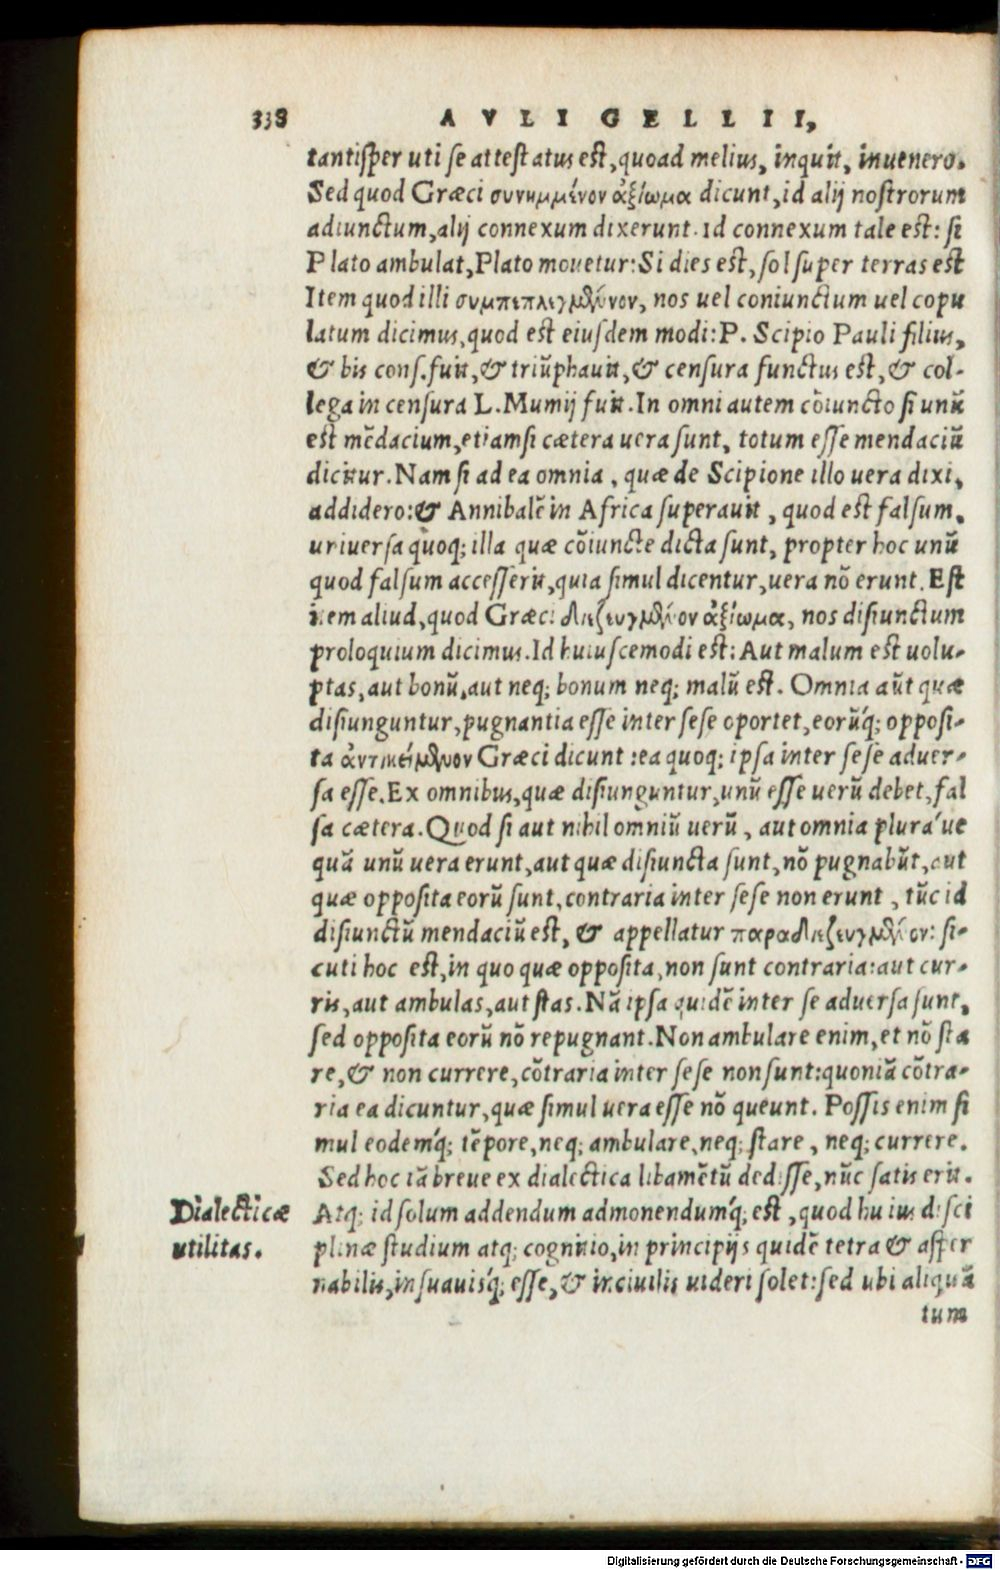 338 AVLI GELLII,
tantisper uti se attestatus est, quoad melius, inquit, inuenero.
Sed quod Græci συνημμένον ἀξίωμα dicunt, id alij nostrorum
adiunctum, alij connexum dixerunt. id connexum tale est: si
Plato ambulat, Plato mouetur: Si dies est, sol super terras est
Item quod illi συμπεπλεγμένον, nos uel coniunctum uel copu
latum dicimus, quod est eiusdem modi: P. Scipio Pauli filius,
& bis cons. fuit, & triũphauit, & censura functus est, & col-
lega in censura L. Mumij fuit. In omni autem cõiuncto si unũ
est mẽdacium, etiamsi cætera uera sunt, totum esse mendaciũ
dicitur. Nam si ad ea omnia, quæ de Scipione illo uera dixi,
addidero: & Annibalẽ in Africa superauit, quod est falsum,
uniuersa quoq; illa quæ cõiuncte dicta sunt, propter hoc unũ
quod falsum accesserit, quia simul dicentur, uera nõ erunt. Est
item aliud, quod Græci διεζευγμένον ἀξίωμα, nos disiunctum
proloquium dicimus. Id huiuscemodi est: Aut malum est uolu-
ptas, aut bonũ, aut neq; bonum neq; malũ est. Omnia aũt quæ
disiunguntur, pugnantia esse inter sese oportet, eorũq́; opposi-
ta ἀντικείμενον Græci dicunt: ea quoq; ipsa inter sese aduer-
sa esse. Ex omnibus, quæ disiunguntur, unũ esse uerũ debet, fal
sa cætera. Quod si aut nihil omniũ uerũ, aut omnia plura´ue
quã unũ uera erunt, aut quæ disiuncta sunt, nõ pugnabũt, aut
quæ opposita eorũ sunt, contraria inter sese non erunt, tũc id
disiunctũ mendaciũ est, & appellatur παραδιεζευγμένον: si-
cuti hoc est, in quo quæ opposita, non sunt contraria: aut cur-
ris, aut ambulas, aut stas. Nã ipsa quidẽ inter se aduersa sunt,
sed opposita eorũ nõ repugnant. Non ambulare enim, et nõ sta
re, & non currere, cõtraria inter sese non sunt: quoniã cõtra-
ria ea dicuntur, quæ simul uera esse nõ queunt. Possis enim si
mul eodemq́; tẽpore, neq; ambulare, neq; stare, neq; currere.
Sed hoc iã breue ex dialectica libamẽtũ dedisse, nũc satis erit.
Dialecticæ
utilitas.
Atq; id solum addendum admonendumq́; est, quod huius disci
plinæ studium atq; cognitio, in principijs quidẽ tetra & asper
nabilis, insuauisq́; esse, & inciuilis uideri solet: sed ubi aliquã
tum
Digitalisierung gefördert durch die Deutsche Forschungsgemeinschaft - DFG